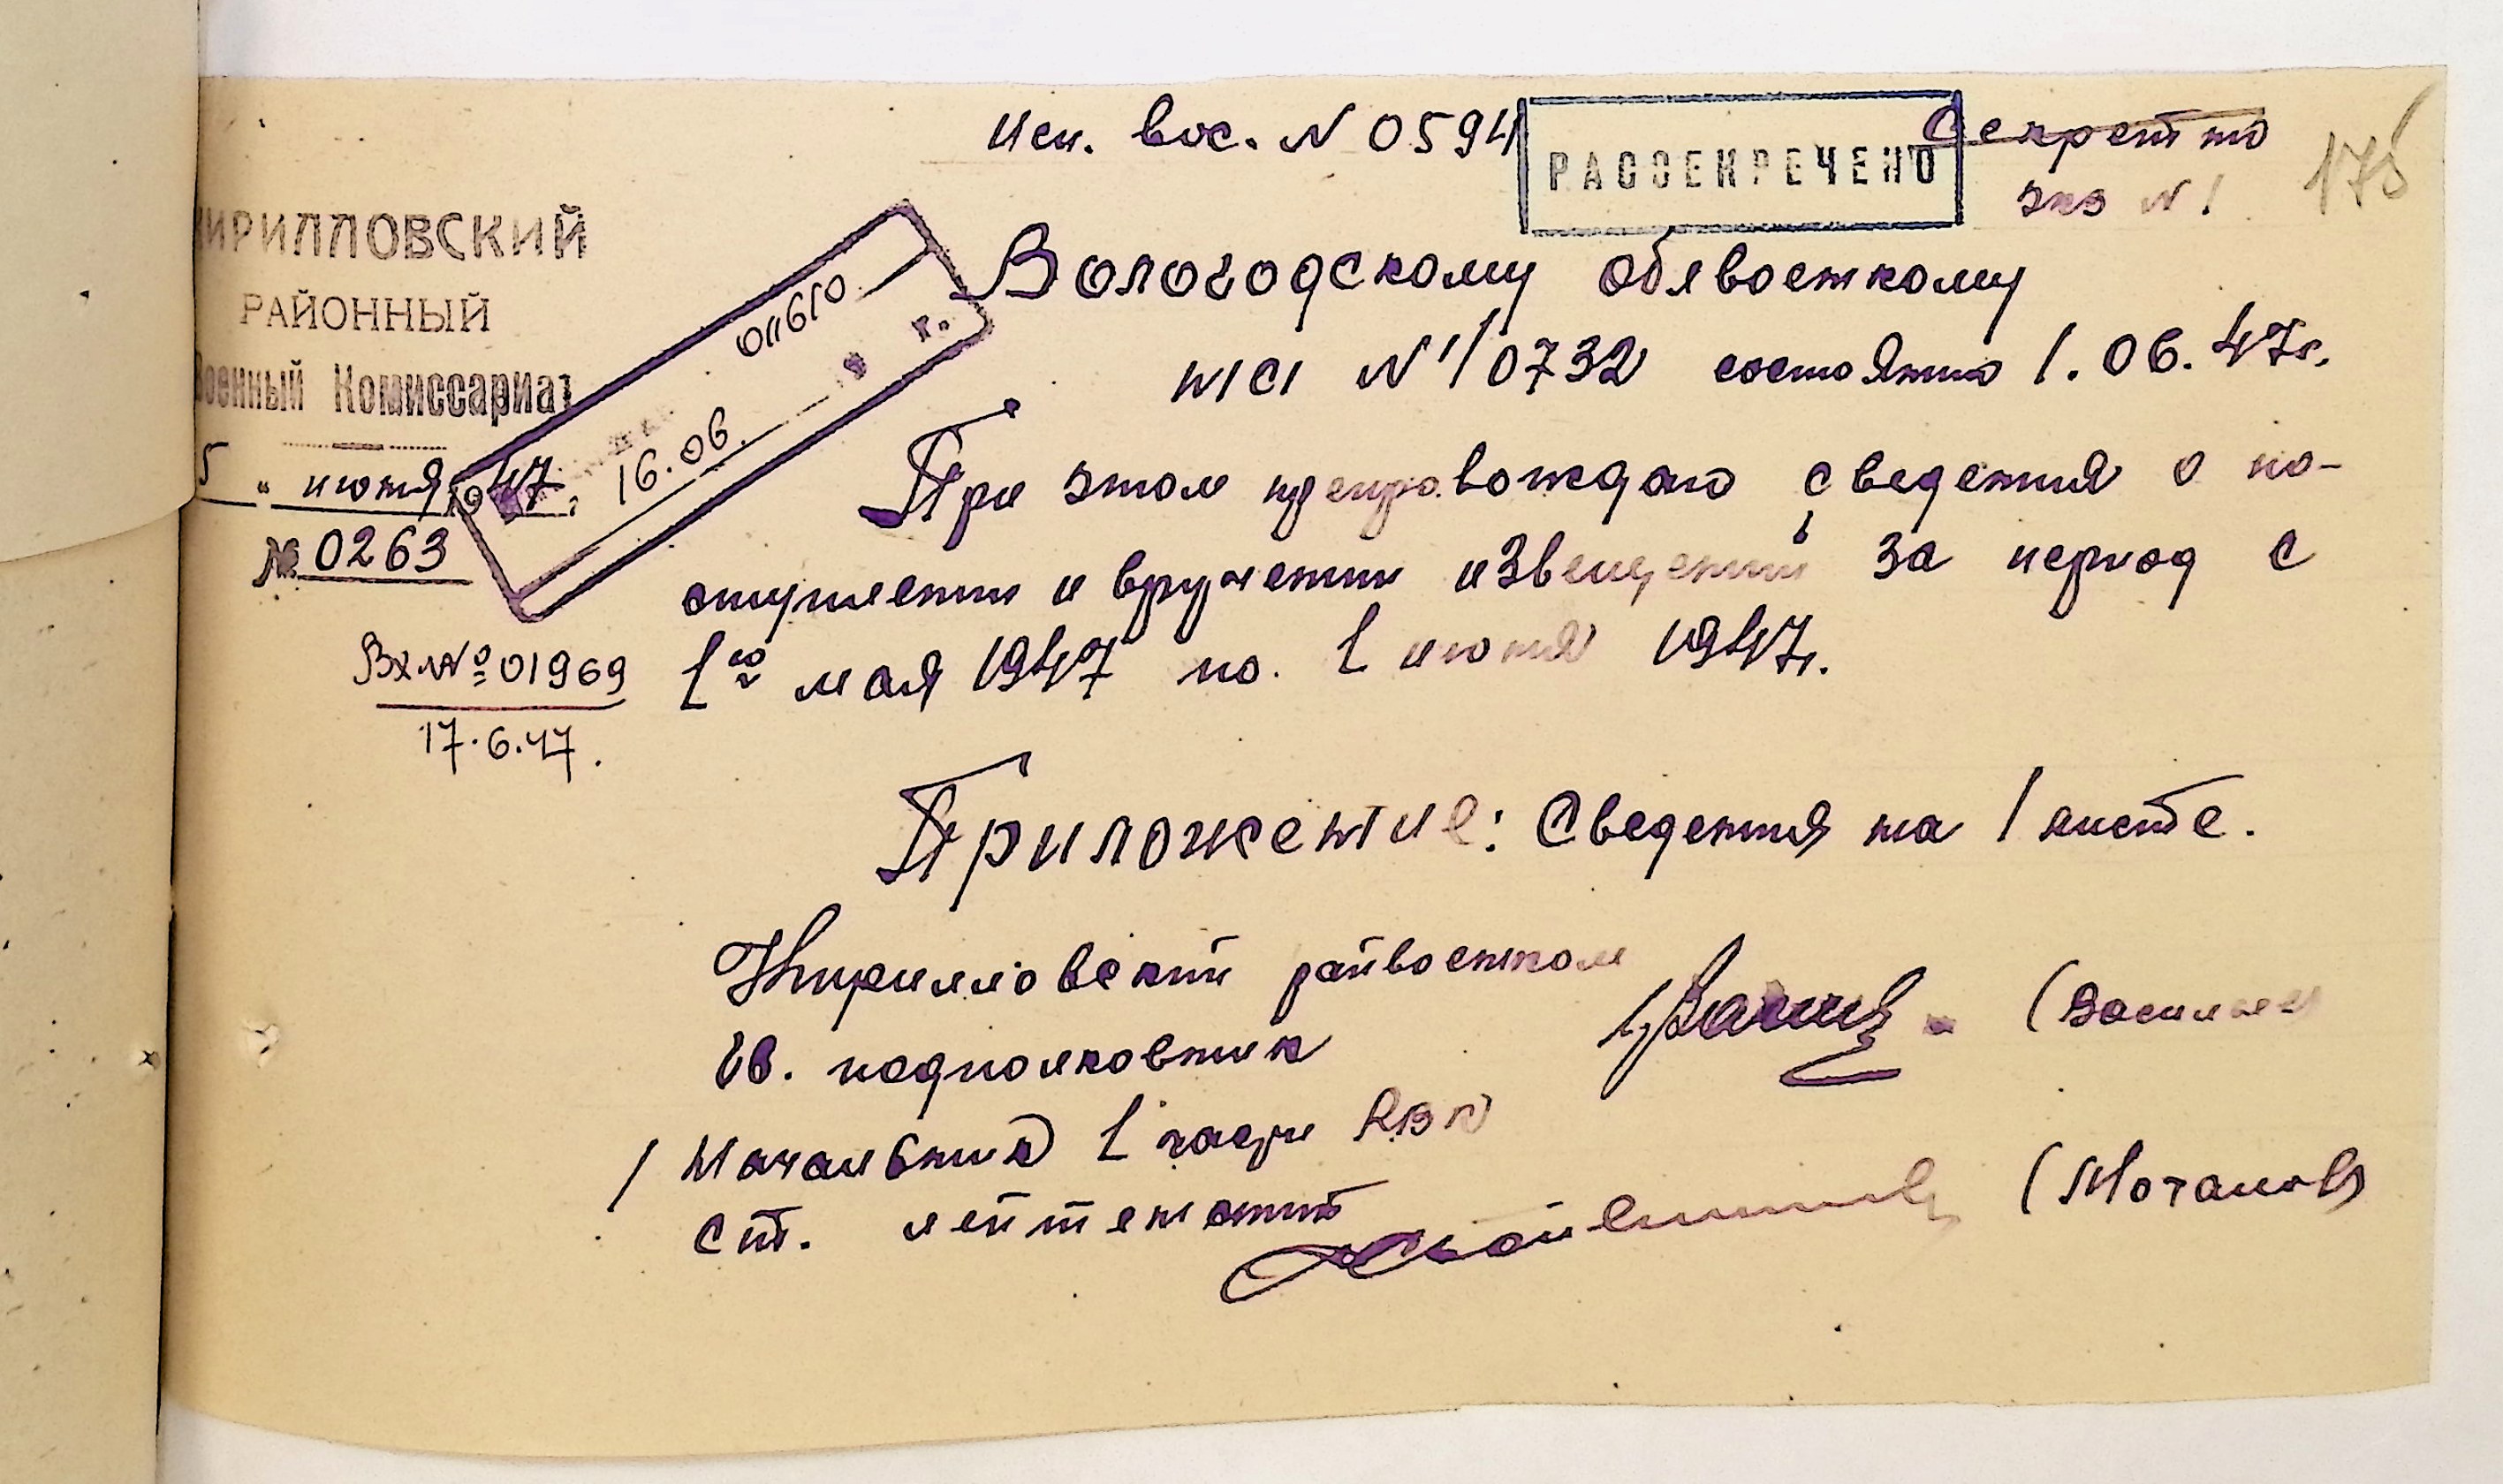 Исп. вос. N 0594
РАССЕКРЕЧЕНО
Секретно
экз N 1
175
КИРИЛЛОВСКИЙ
РАЙОННЫЙ
Военный Комиссариат
5 " июня 1947 г
№ 0263
16.06
г.
Вх № 01969
17.6.47.
Вологодскому облвоенкому
N 1/0732 состоянию 1.06.47г.
При этом препровождаю сведения о по-
ступлении и вручении извещений за период с
1го мая 1947 по 1 июня 1947г.
Приложение: Сведения на 1 листе.
Кирилловский райвоенком
гв. подполковник
(Васильев
/ Начальник 1 части РВК
ст. лейтенант